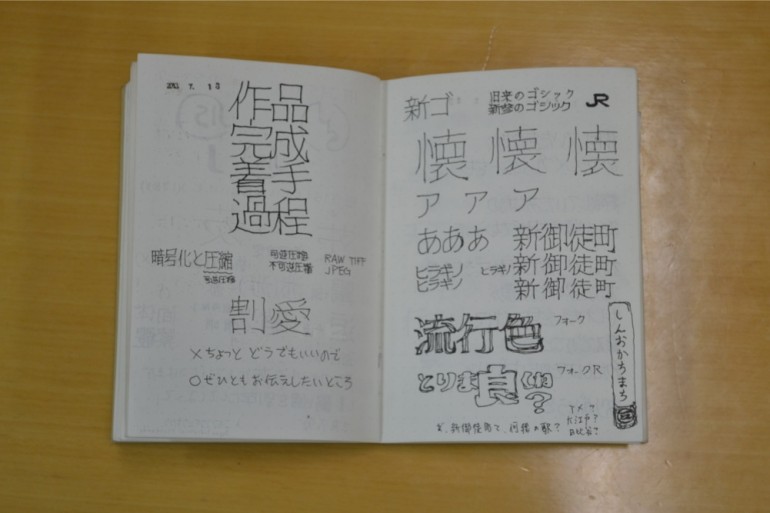 2013 7. 13
作品
完成
着手
過程
暗号化と圧縮
可逆圧縮
可逆圧縮
不可逆圧縮
RAW TIFF
JPEG
割愛
×ちょっと どうでもいいので
○ぜひとも お伝えしたいところ
新ゴ
旧来のゴシック
新参のゴシック
JR
懐 懐 懐
ア ア ア
あああ
新御徒町
ヒラギノ
ヒラギノ
ヒラギノ
新御徒町
新御徒町
流行色
フォーク
しんおかちまち
とりま良くね?
フォークR